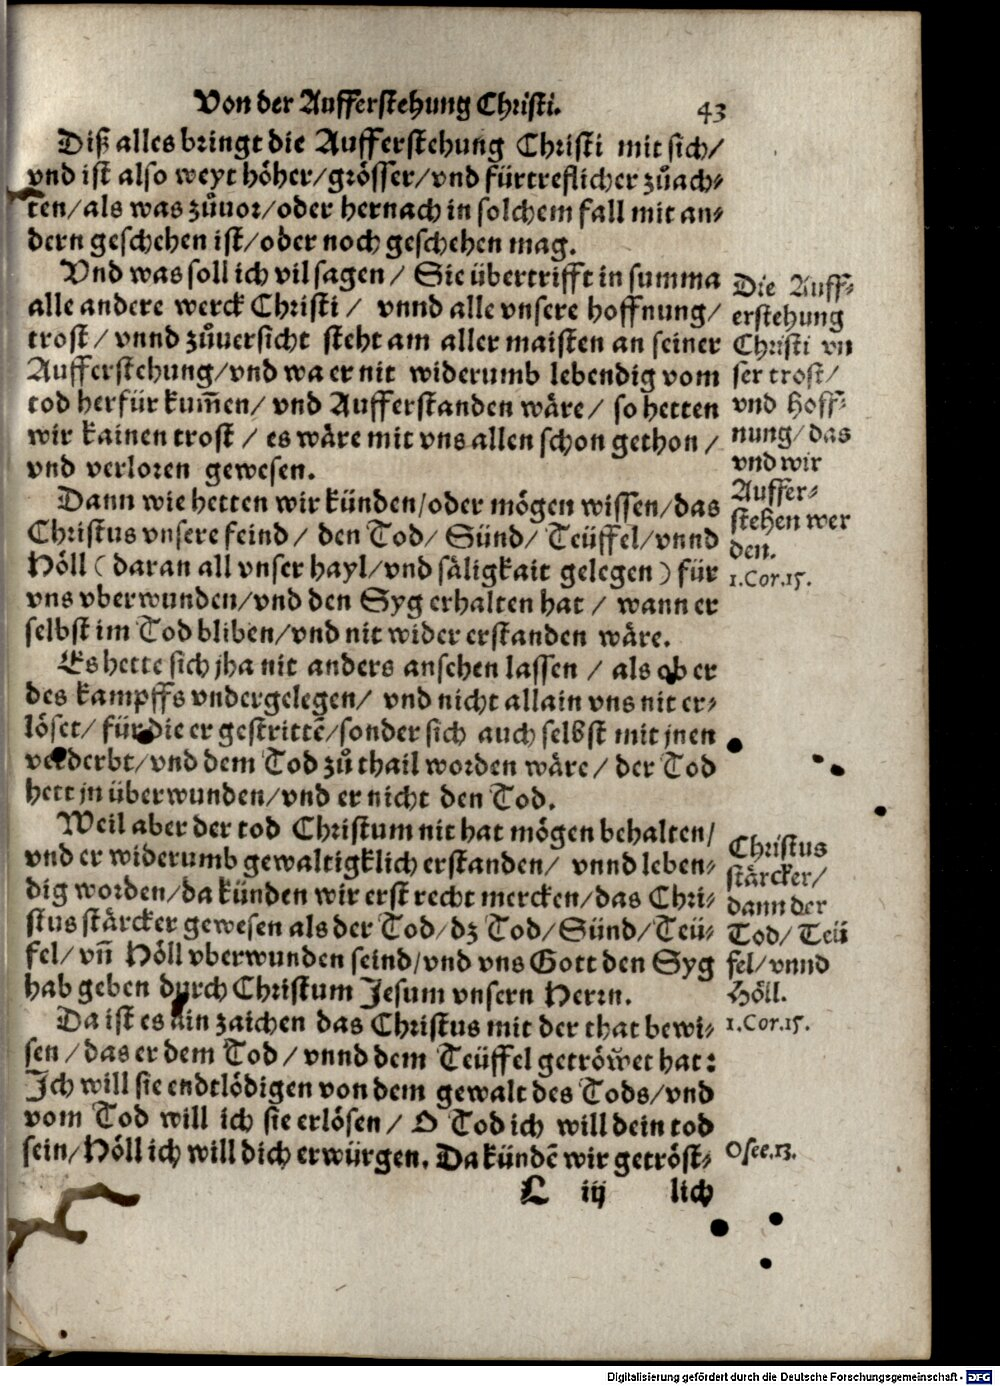 Von der Aufferstehung Christi.
43
Diß alles bringt die Aufferstehung Christi mit sich/
vnd ist also weyt höher/grösser/vnd fürtreflicher zůach⸗
ten/als was zůuor/oder hernach in solchem fall mit an⸗
dern geschehen ist/oder noch geschehen mag.
Vnd was soll ich vil sagen/ Sie übertrifft in summa
alle andere werck Christi/ vnnd alle vnsere hoffnung/
trost/ vnnd zůuersicht steht am aller maisten an seiner
Aufferstehung/vnd wa er nit widerumb lebendig vom
tod herfür kum̃en/ vnd Aufferstanden wäre/ so hetten
wir kainen trost/ es wäre mit vns allen schon gethon/
vnd verloren gewesen.
Die Auff⸗
erstehung
Christi vn
ser trost/
vnd Hoff⸗
nung/das
vnd wir
Auffer⸗
stehen wer
den.
1.Cor.15.
Dann wie hetten wir künden/oder mögen wissen/das
Christus vnsere feind/ den Tod/ Sünd/ Teüffel/vnnd
Höll (daran all vnser hayl/vnd säligkait gelegen) für
vns vberwunden/vnd den Syg erhalten hat/ wann er
selbst im Tod bliben/vnd nit wider erstanden wäre.
Es hette sich jha nit anders ansehen lassen/ als ob er
des kampffs vndergelegen/ vnd nicht allain vns nit er⸗
löset/ für die er gestrittẽ/sonder sich auch selbst mit jnen
verderbt/vnd dem Tod zů thail worden wäre/ der Tod
hett jn überwunden/vnd er nicht den Tod.
Weil aber der tod Christum nit hat mögen behalten/
vnd er widerumb gewaltigklich erstanden/ vnnd leben⸗
dig worden/da künden wir erst recht mercken/das Chri⸗
stus stärcker gewesen als der Tod/dz Tod/Sünd/Teü⸗
fel/ vñ Höll vberwunden seind/vnd vns Gott den Syg
hab geben durch Christum Jesum vnsern Herrn.
Christus
stärcker/
dann der
Tod/ Teü
fel/vnnd
Höll.
1.Cor.15.
Da ist es ain zaichen das Christus mit der that bewi⸗
sen/das er dem Tod/ vnnd dem Teüffel getröwet hat:
Ich will sie endtlödigen von dem gewalt des Tods/vnd
vom Tod will ich sie erlösen/ O Tod ich will dein tod
sein/Höll ich will dich erwürgen. Da kündẽ wir getröst⸗
Osee.13.
L iij lich
Digitalisierung gefördert durch die Deutsche Forschungsgemeinschaft - DFG